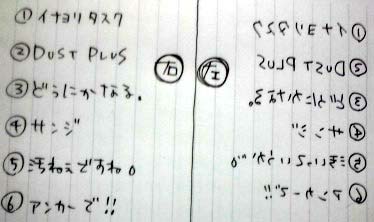 ① イナヨリタスク
② DUST PLUS
③ どうにかなる。
④ サンジ
⑤ 汚ねえですね。
⑥ アンカーで!!
右
左
①
② DUST PLUS
③ どうにかなる。
④ サンジ
⑤
⑥ アンカーで!!